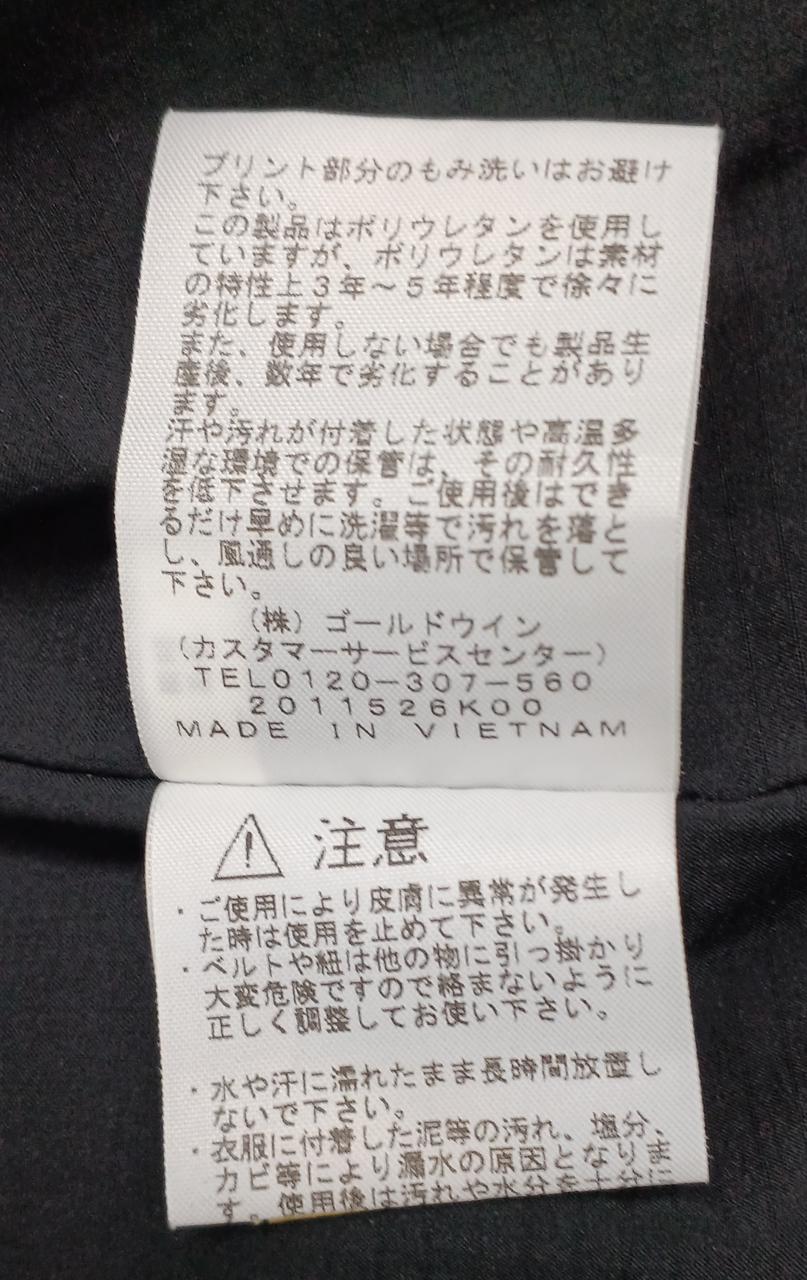 プリント部分のもみ洗いはお避け
下さい。
この製品はポリウレタンを使用し
ていますが、ポリウレタンは素材
の特性上3年～5年程度で徐々に
劣化します。
また、使用しない場合でも製品生
産後、数年で劣化することがあり
ます。
汗や汚れが付着した状態や高温多
湿な環境での保管は、その耐久性
を低下させます。ご使用後はでき
るだけ早めに洗濯等で汚れを落と
し、風通しの良い場所で保管して
下さい。
(株)ゴールドウイン
(カスタマーサービスセンター)
TEL0120-307-560
2011526K00
MADE IN VIETNAM
⚠ 注意
・ご使用により皮膚に異常が発生し
た時は使用を止めて下さい。
・ベルトや紐は他の物に引っ掛かり
大変危険ですので絡まないように
正しく調整してお使い下さい。
・水や汗に濡れたまま長時間放置し
ないで下さい。
・衣服に付着した泥等の汚れ、塩分、
カビ等により漏水の原因となりま
す。使用後は汚れや水分を十分に